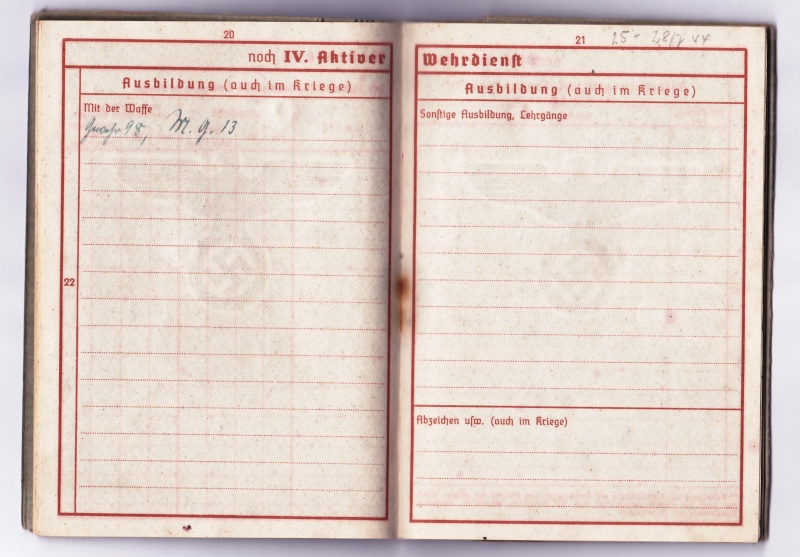 20
noch IV. Aktiver
Ausbildung (auch im Kriege)
Mit der Waffe
Gewehr 98, M. g. 13
22
21
25 - 28/7 44
Wehrdienst
Ausbildung (auch im Kriege)
Sonstige Ausbildung, Lehrgänge
Abzeichen usw. (auch im Kriege)